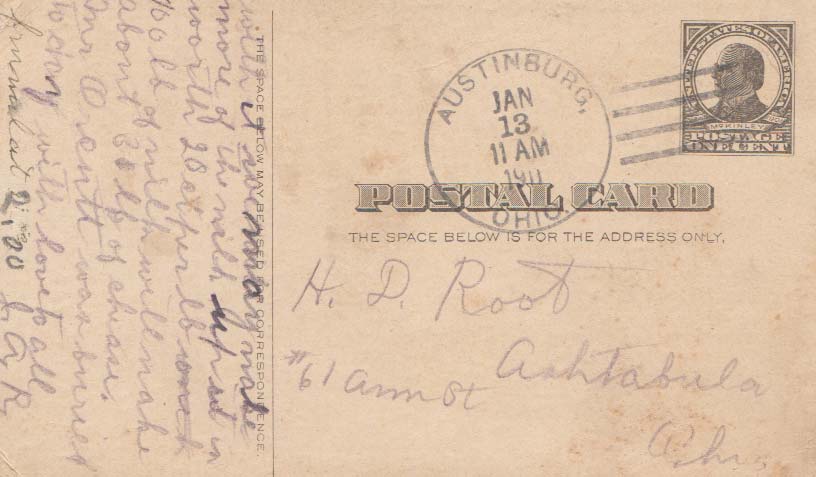 UNITED STATES OF AMERICA
McKINLEY
POSTAGE
ONE CENT
AUSTINBURG,
JAN
13
11 AM
1911
OHIO
POSTAL CARD
THE SPACE BELOW IS FOR THE ADDRESS ONLY.
H. D. Root
#61 Ann St Ashtabula
Ohio
THE SPACE BELOW MAY BE USED FOR CORRESPONDENCE.
with it may make
more of the milk up in
worth 20 ct per lb
lb of milk will make
about lb of cheese.
was buried
today with love to all
at 2.00 J. A. R.